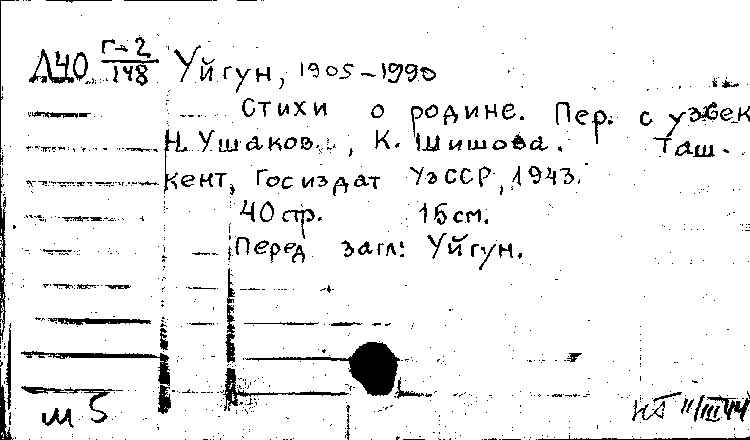 Д40 Г-2/148 Уйгун, 1905-1990
Стихи о родине. Пер. с узбек
Н. Ушаков., К. Шишова. Таш.
кент, Госиздат УзССР, 1943.
40 стр. 15 см.
Перед загл: Уйгун.
м 5
11/III 44